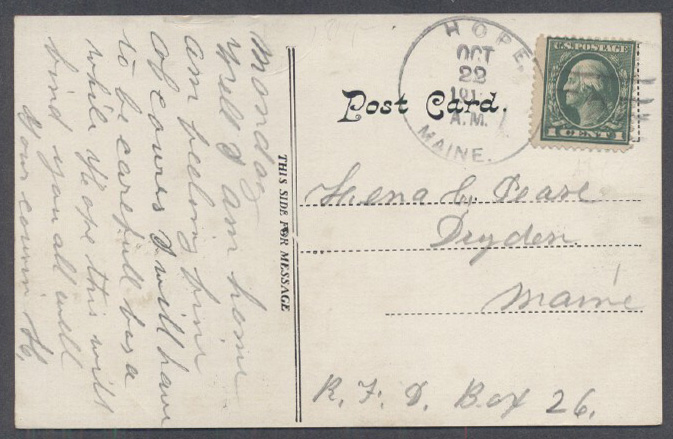 Monday
Well I am home
am feeling fine
of cours I will have
to be carefull for a
while Hope this will
find you all well
Your cousin
THIS SIDE FOR MESSAGE
Post Card.
HOPE,
OCT
22
A.M.
MAINE.
U.S. POSTAGE
1 CENT 1
Pease
Dryden.
Maine
R. F. D. Box 26.